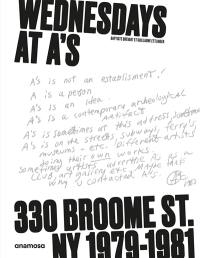 WEDNESDAYS
AT A'S
A's is not an establisment!
A is a person
A's is an idea.
A's is a contemporary archeological
Artifact
A's is sometimes at this address, sometimes
A's is on the streets, subways, ferry's,
museums - etc. Different artists
doing their own works.
sometimes artists advertise A's as a
club, art gallery etc.
why I contacted A's.
330 BROOME ST.
anamosa
NY 1979-1981